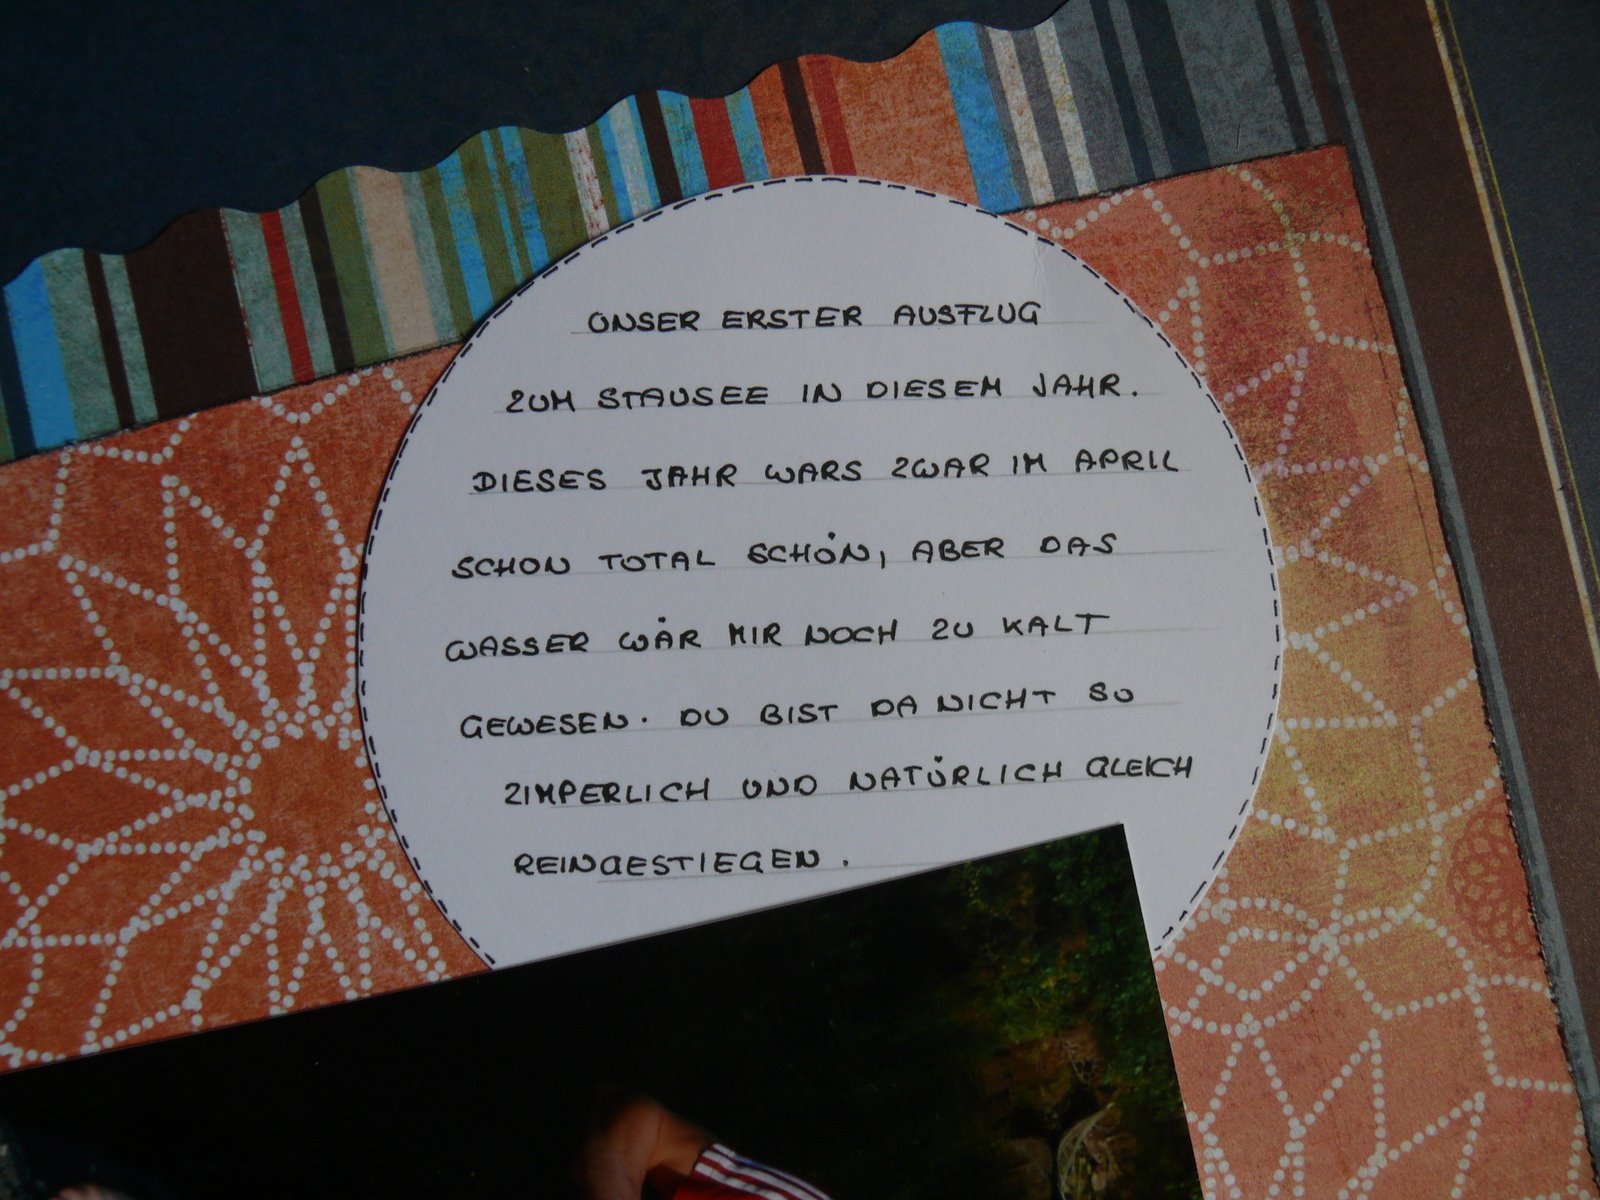 UNSER ERSTER AUSFLUG
ZUM STAUSEE IN DIESEM JAHR.
DIESES JAHR WARS ZWAR IM APRIL
SCHON TOTAL SCHÖN, ABER DAS
WASSER WÄR MIR NOCH ZU KALT
GEWESEN. DU BIST DA NICHT SO
ZIMPERLICH UND NATÜRLICH GLEICH
REINGESTIEGEN.